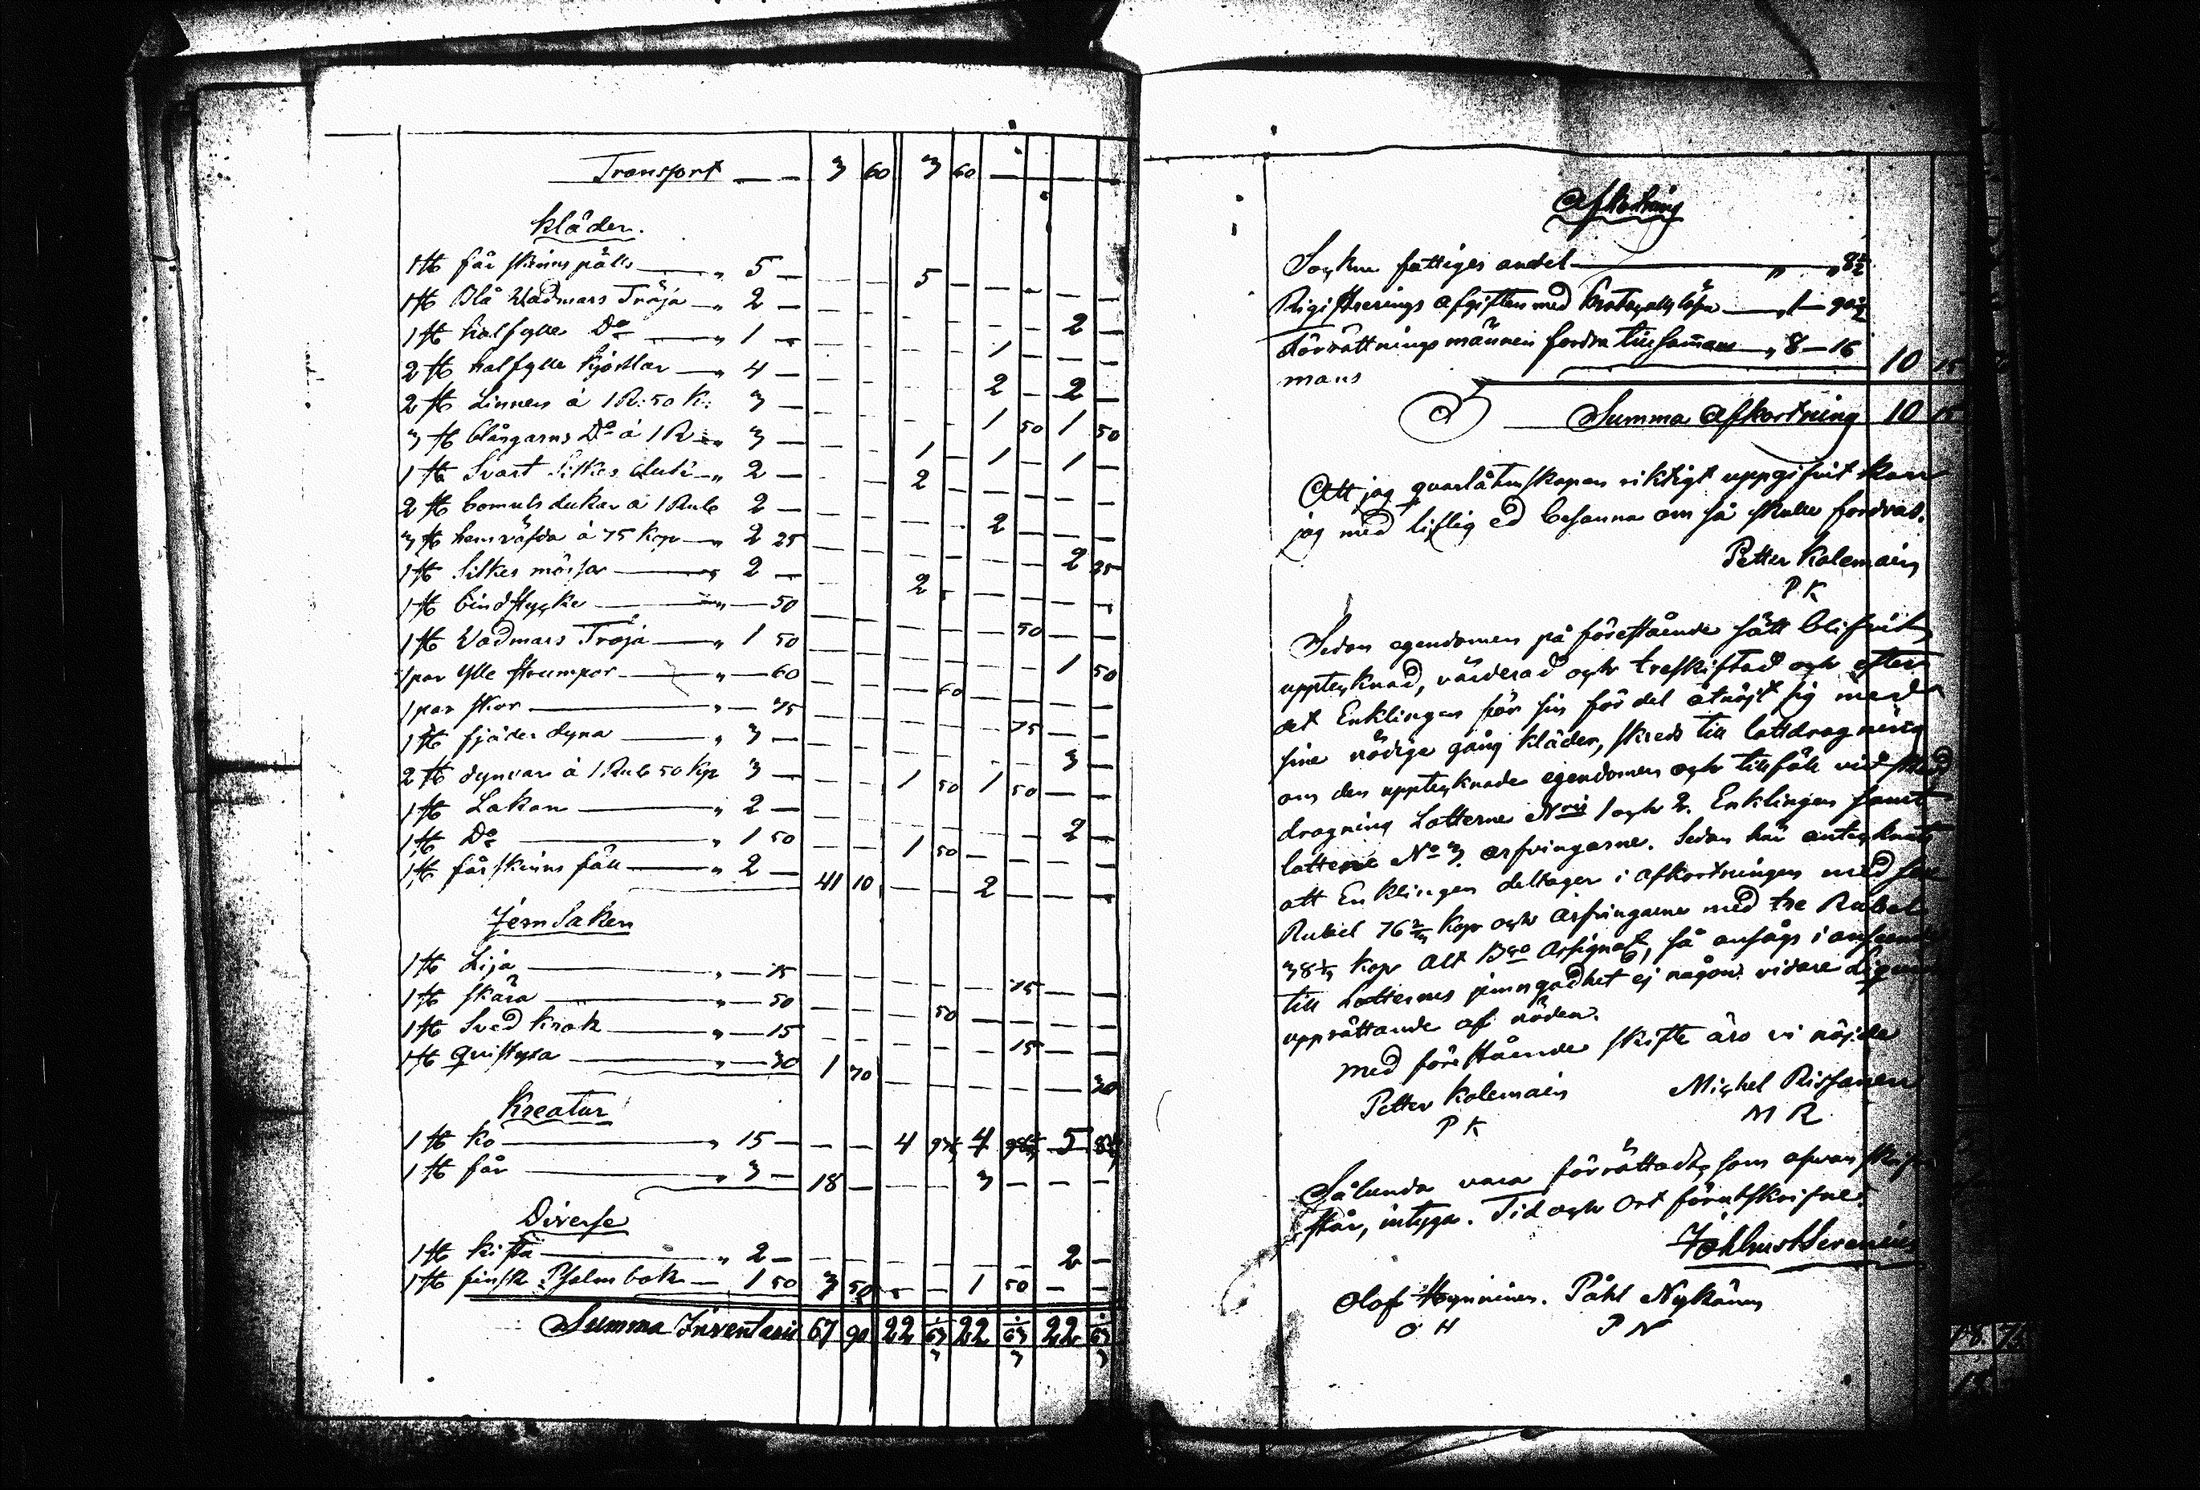 Transport — — 3 60 3 60 — — — —
Kläder.
1 st får skinns päls — " 5 — — — 5 — — — — —
1 st Blå Wadmars Tröja — " 2 — — — — — — — 2 —
1 st halfylle Do — " 1 — — — — — 1 — — —
2 st halfylle Kjortlar — " 4 — — — — — 2 — 2 —
2 st Linnen á 1 R: 50 K: 3 — — — — — 1 50 1 50
3 st blångarns Do á 1 R " 3 — — — 1 — 1 — 1 —
1 st Svart Silkes duk — " 2 — — — 2 — — — — —
2 st bomuls dukar á 1 Rub 2 — — — — — 2 — — —
3 st hemväfda á 75 Kop — " 2 25 — — — — — — 2 25
1 st Silkes mössa — " 2 — — — 2 — — — — —
1 st bindstycke — " — 50 — — — — — 50 — —
1 st Wadmars Tröja — " 1 50 — — — — — — 1 50
1 par Ylle strumpor — " — 60 — — — 60 — — — —
1 par skor — " — 75 — — — — — 75 — —
1 st fjäder dyna — " 3 — — — — — — — 3 —
2 st dynvar á 1 Rub 50 Kop 3 — — — 1 50 1 50 — —
1 st Lakan — " 2 — — — — — — — 2 —
1 st Do — " 1 50 — — 1 50 — — — —
1 st får skinns fäll — " 2 — 41 10 — — 2 — — —
Jern Saker
1 st Lija — " — 75 — — — — — 75 — —
1 st skära — " — 50 — — — 50 — — — —
1 st Sved krok — " — 15 — — — — — 15 — —
1 st qvistyxa — " — 30 1 70 — — — — — 30
Kreatur
1 st ko — " 15 — — — 4 4 5
1 st får — " 3 — 18 — — — 3 — — —
Diverse
1 st kista — " 2 — — — — — — — 2 —
1 st finsk Psalmbok — 1 50 3 50 — — 1 50 — —
Summa Inventarii 67 90 22 63 1/3 22 63 1/3 22 63 1/3
Afkortning
Socknе fattiges andel — " " 8 1/2
Rigistrerings afgiften med — " 1 — 90 1/2
Förrättnings männen fordra tillsamans — " 8 — 16 10 15
mans
Summa Afkortning 10 15
Att jag qvarlåtenskapen riktigt uppgifvit kan
jag med liflig ed besanna om så skulle fordras.
Petter Kolemain
P K
Sedan egendomen på förestående sätt blifvit
upptecknad, värderad och treskiftad och efter
det Enklingen för sin fördel åtnöjt sig med
sine nödige gång kläder, skreds till lottdragning
om den upptecknade egendomen och tillföll vid sked
dragning Lotterne Nrii 1 och 2. Enklingen samt
lotten No 3. arfvingarne. Sedan här antecknats
att Enklingen deltager i afkortningen med sex
Rubel 76 2/3 kop och arfvingarne med tre Rubel
38 1/3 kop allt Bco Assignat, så ansågs i anseende
till Lotternes jemngodhet ej någon vidare
upprättande af nöden.
Med förestående skifte äro vi nöjda
Petter Kolemain Michel Rissanen
P K M R
Sålunda vara förrättadt, som ofvan skrifvit
står, intyga. Tid och Ort förutskrifne.
Olof Hynninen. Påhl Nykänen
O H P N